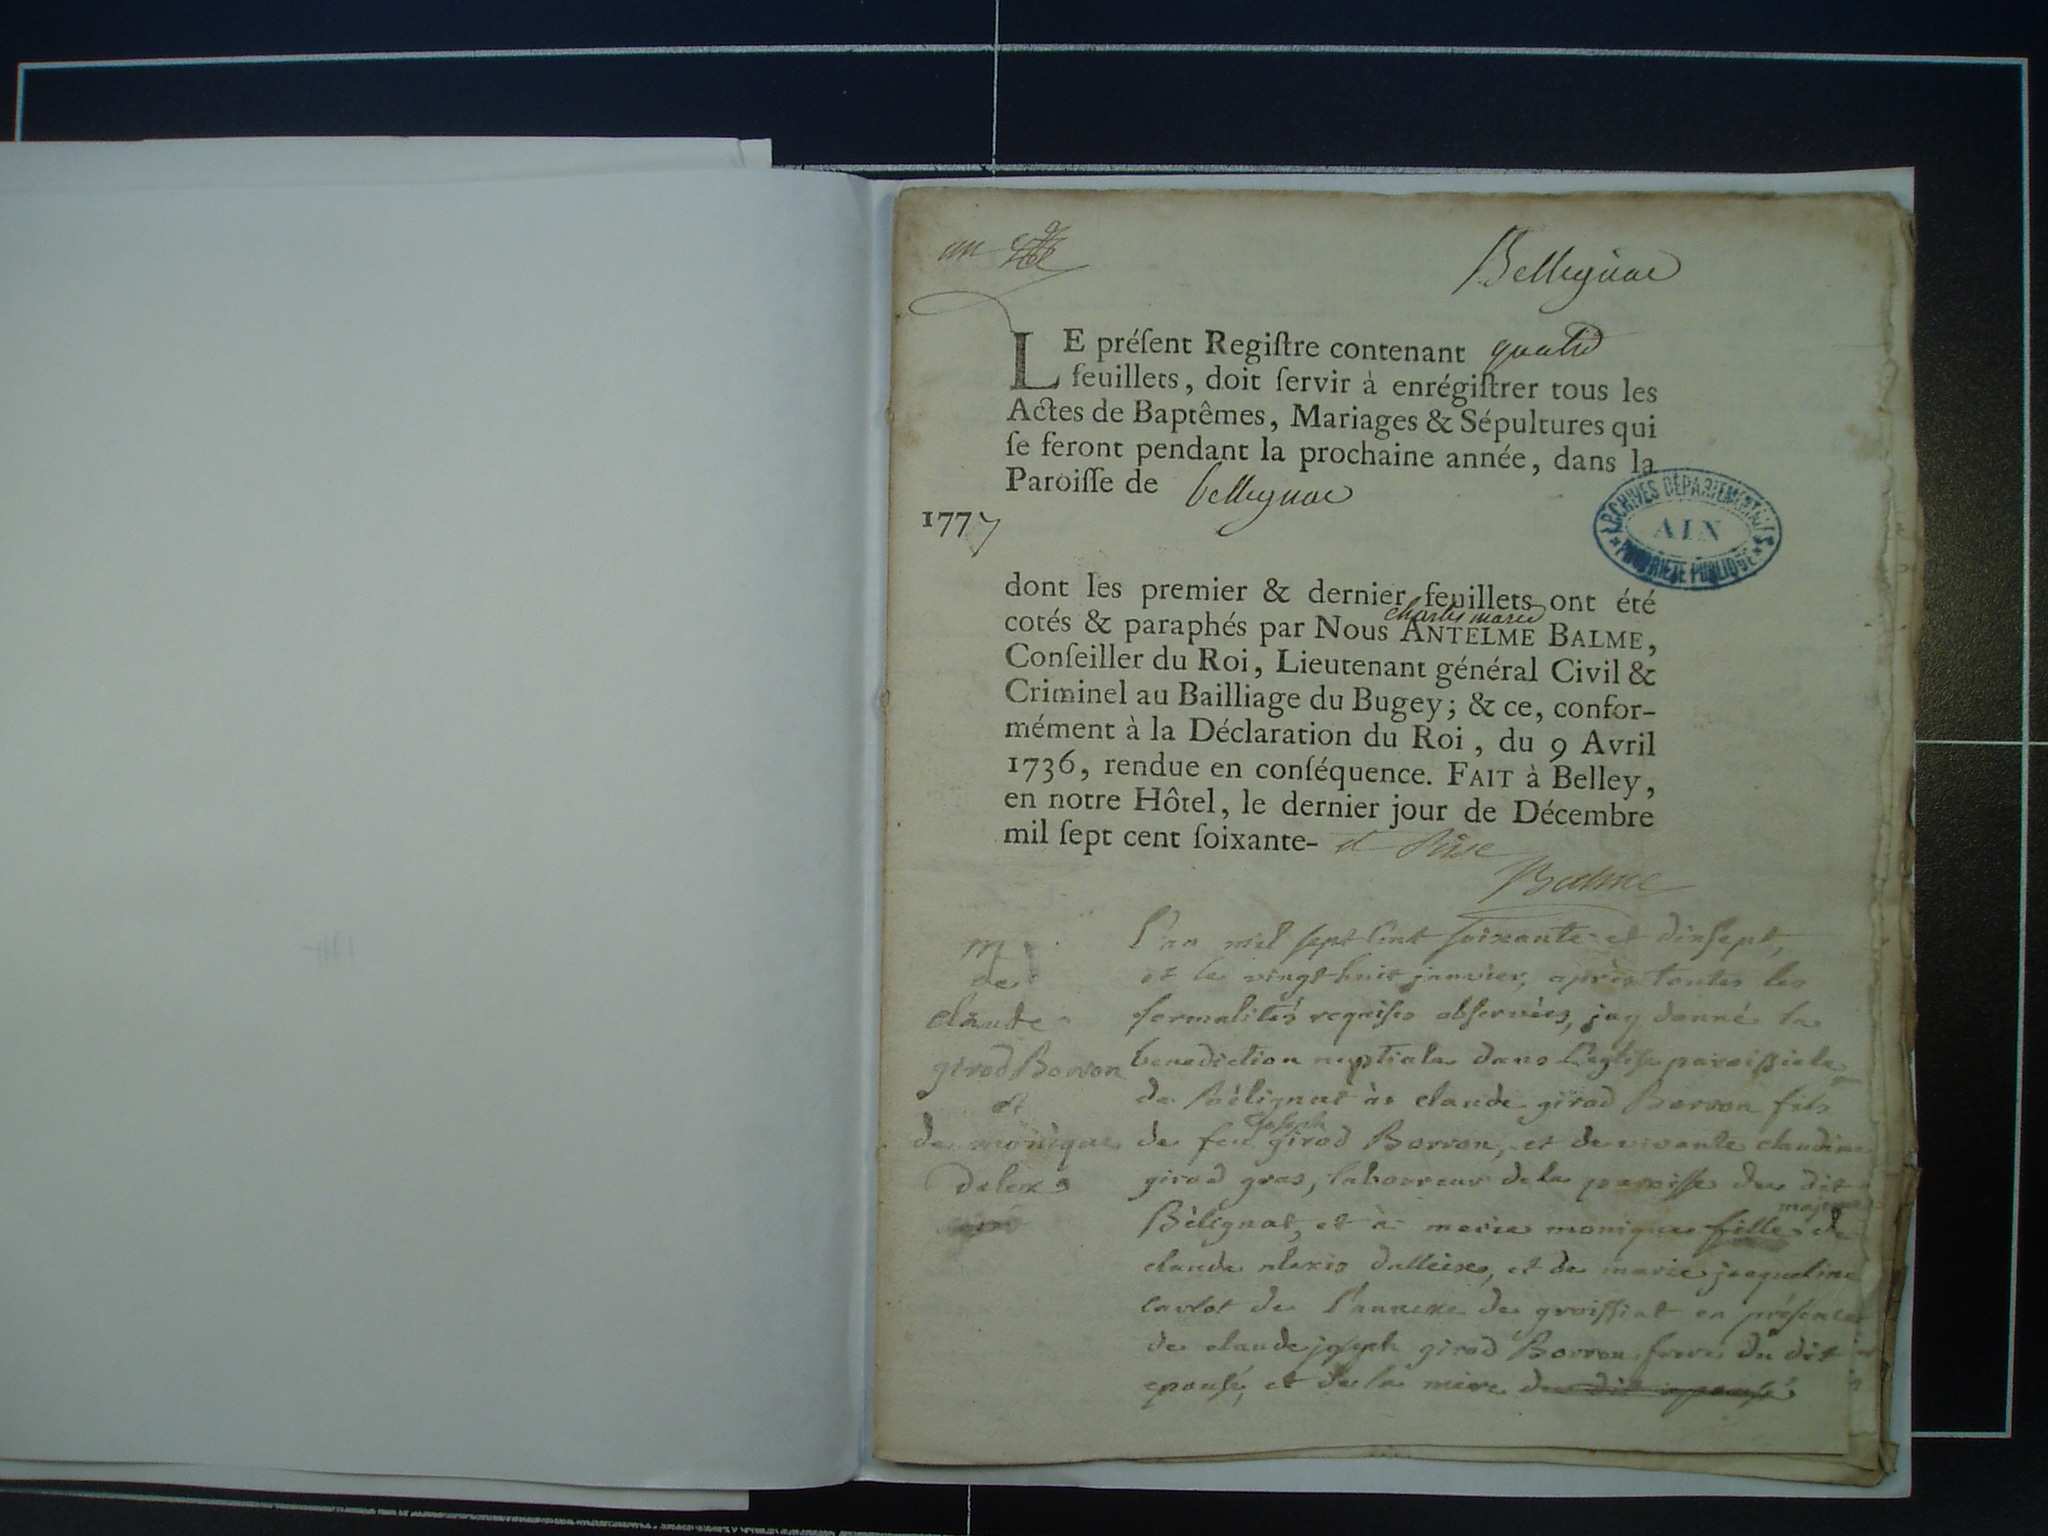 un
Bellignac
LE préſent Regiſtre contenant quatre
feuillets, doit ſervir à enrégiſtrer tous les
Actes de Baptêmes, Mariages & Sépultures qui
ſe feront pendant la prochaine année, dans la
Paroiſſe de bellignac
1777
ARCHIVES DÉPARTEMENTALES
AIN
PROPRIÉTÉ PUBLIQUE
dont les premier & dernier feuillets ont été
charles marie
cotés & paraphés par Nous ANTELME BALME,
Conſeiller du Roi, Lieutenant général Civil &
Criminel au Bailliage du Bugey; & ce, confor-
mément à la Déclaration du Roi, du 9 Avril
1736, rendue en conſéquence. FAIT à Belley,
en notre Hôtel, le dernier jour de Décembre
mil ſept cent ſoixante- et seise
Balme
m
de
claude
girod Borron
et
de monique
dalex
L'an mil sept cent soixante et dixsept,
et le vingt huit janvier, après toutes les
formalités requises observées, jay donné la
benediction nuptiale dans l'eglise paroissiale
de Bélignat à claude girod Borron fils
de feu joseph girod Borron, et de vivante claudine
girod gras, laboureur de la paroisse du dit
Bélignat, et à marie monique fille majeure de
claude alexis dalleixe, et de marie jacqueline
carlot de l'annexe de groissiat en présence
de claude joseph girod Borron frere du dit
epousé, et de la mere du dit epousé